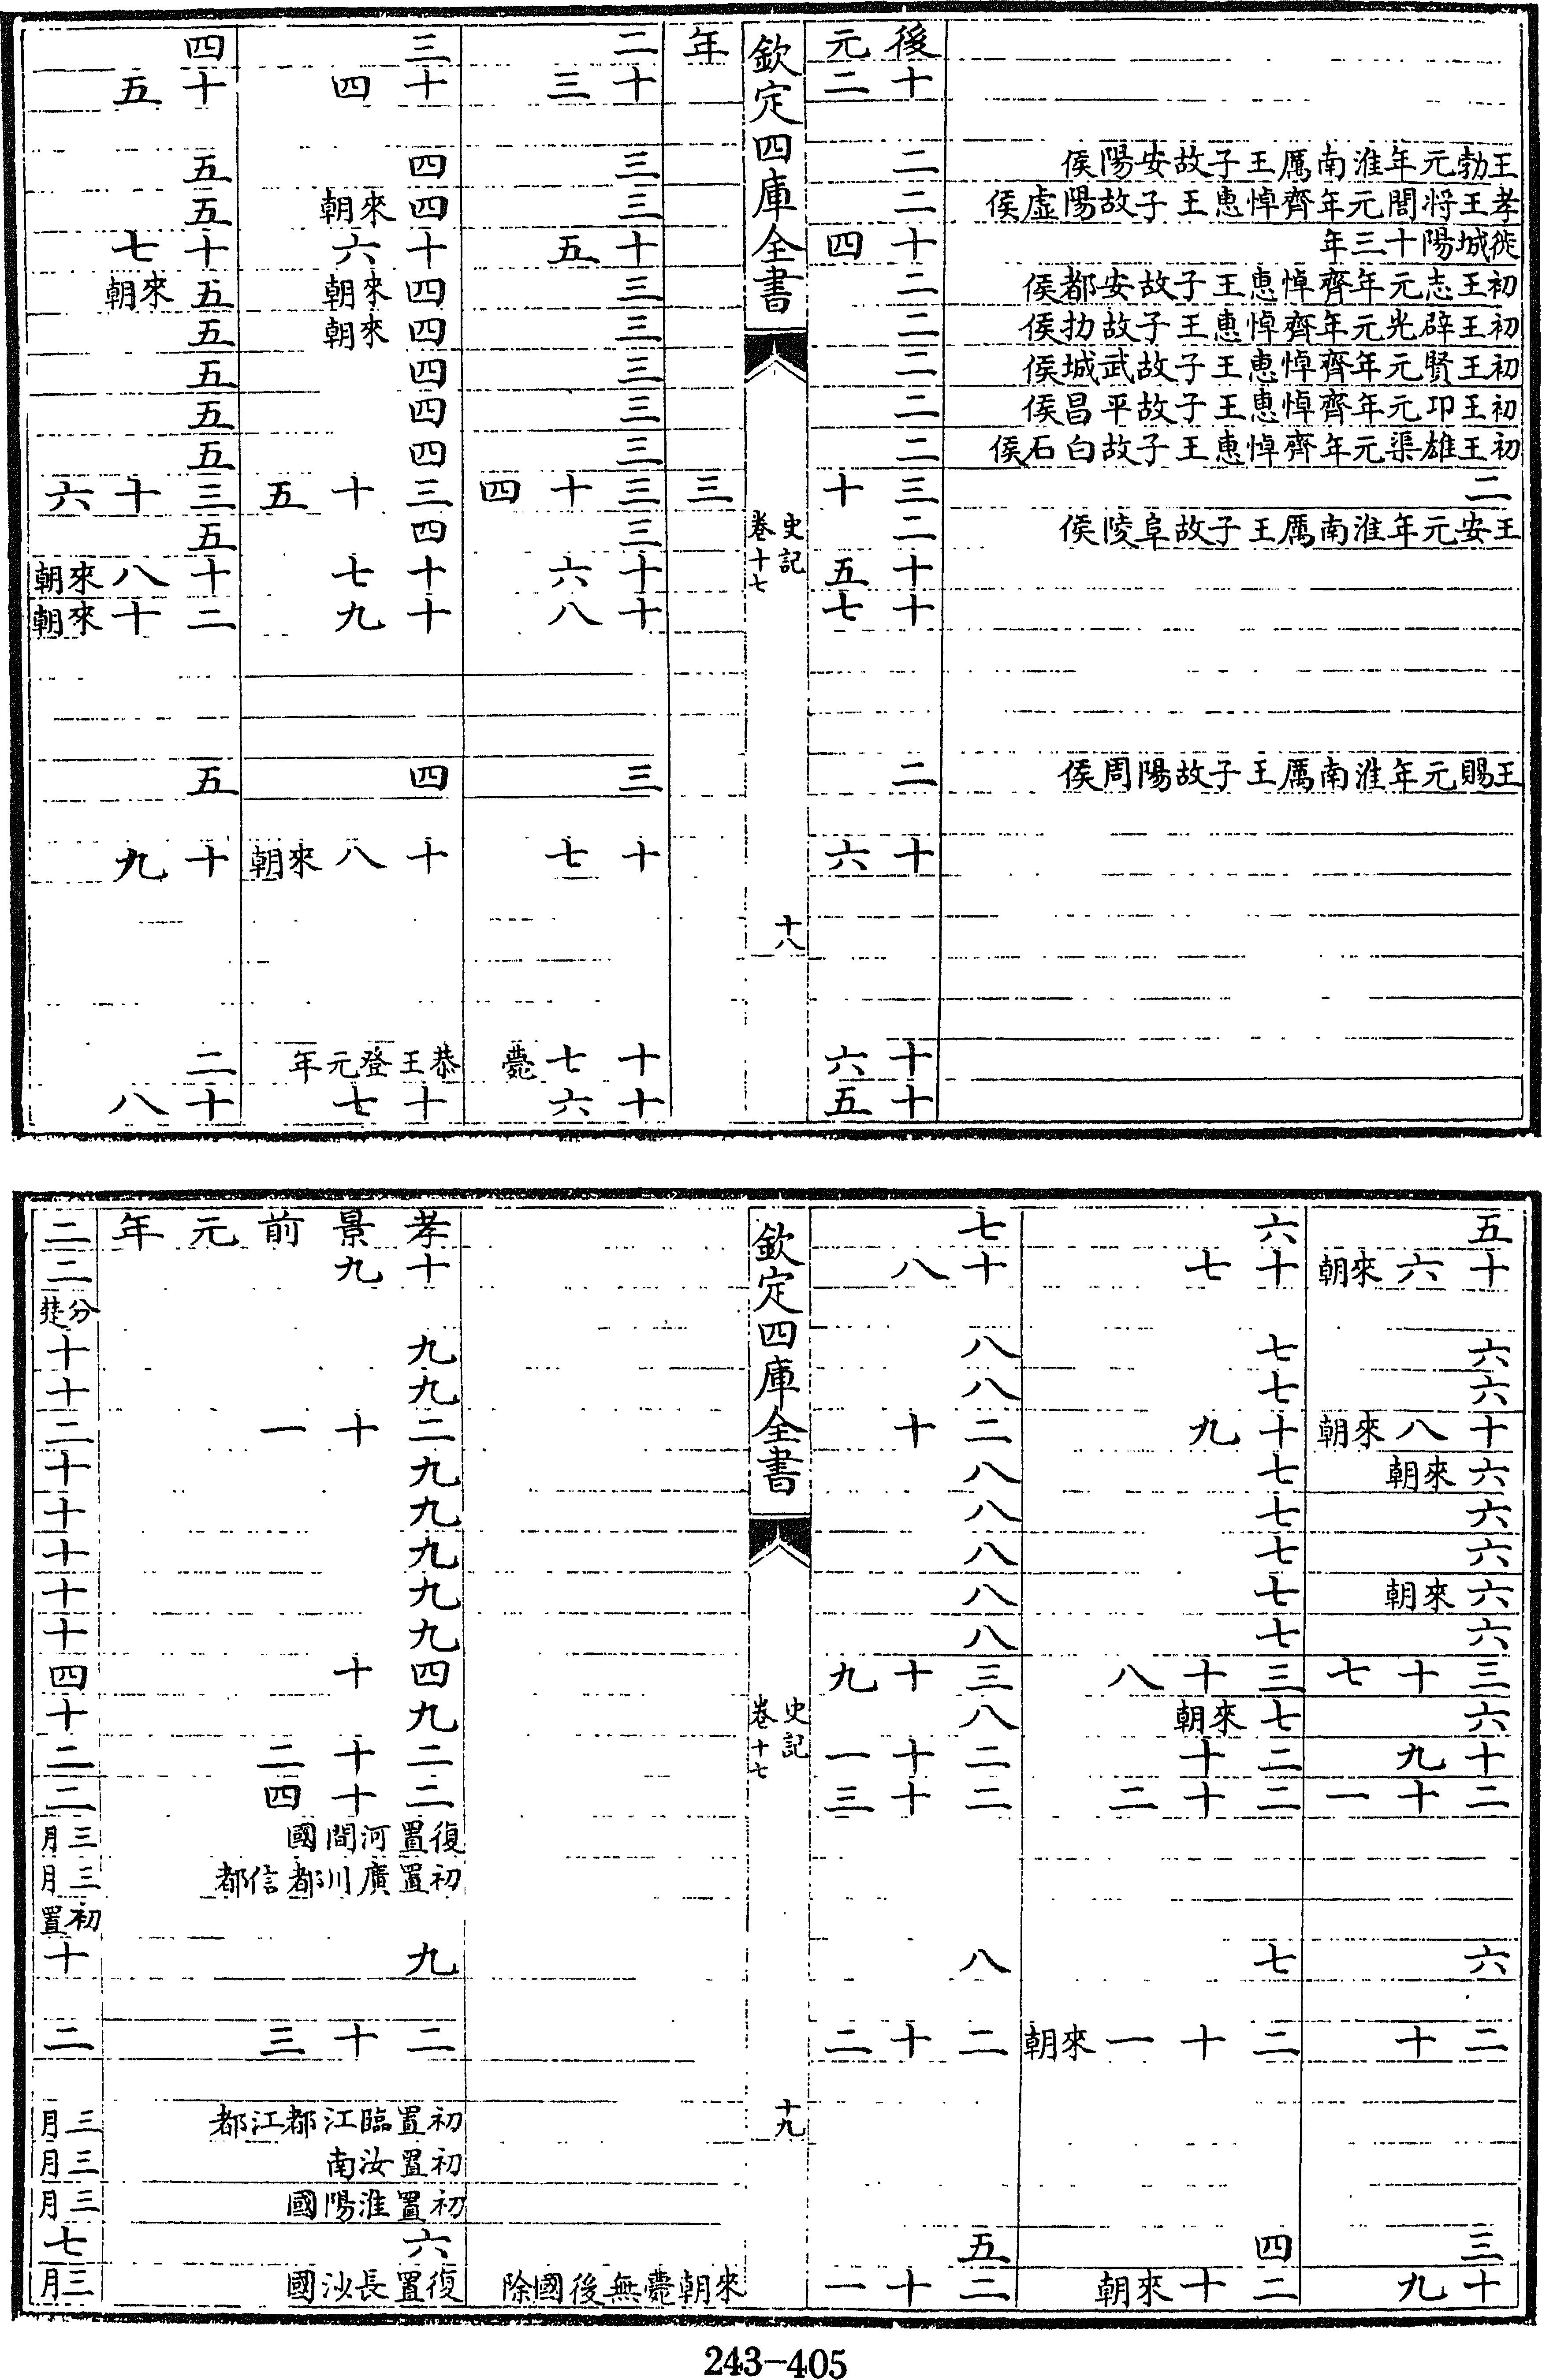 王勃元年淮南厲王子故安陽侯
孝王將閭元年齊悼惠王子故陽虛侯
徙城陽十三年
初王志元年齊悼惠王子故安都侯
初王辟光元年齊悼惠王子故扐侯
初王賢元年齊悼惠王子故武城侯
初王卬元年齊悼惠王子故平昌侯
初王雄渠元年齊悼惠王子故白石侯
二
王安元年淮南厲王子故阜陵侯
王賜元年淮南厲王子故陽周侯
後元
十二
二
二
十四
二
二
二
二
二
三十
二
十五
十七
二
十六
十六
十五
欽定四庫全書
史記
卷十七
十八
年
三
二
十三
三
三
十五
三
三
三
三
三
三十四
三
十六
十八
三
十七
十七薨
十六
三
十四
四
四來朝
十六
四來朝
四來朝
四
四
四
三十五
四
十七
十九
四
十八來朝
恭王登元年
十七
四
十五
五
五
十七
五來朝
五
五
五
五
三十六
五
十八來朝
二十來朝
五
十九
二
十八
五
十六來朝
六
六
十八來朝
六來朝
六
六
六來朝
六
三十七
六
十九
二十一
六
二十
三
十九
六
十七
七
七
十九
七
七
七
七
七
三十八
七來朝
二十
二十二
七
二十一來朝
四
二十來朝
七
十八
八
八
二十
八
八
八
八
八
三十九
八
二十一
二十三
八
二十二
五
二十一
欽定四庫全書
史記
卷十七
十九
來朝薨無後國除
孝景前元年
十九
九
九
二十一
九
九
九
九
九
四十
九
二十二
二十四
復置河間國
初置廣川都信都
九
二十三
初置臨江都江都
初置汝南
初置淮陽國
六
復置長沙國
二
二
分楚
十
十
二
十
十
十
十
十
四
十
二
二
三月
三月
初置
十
二
三月
三月
三月
七
三月
243-405